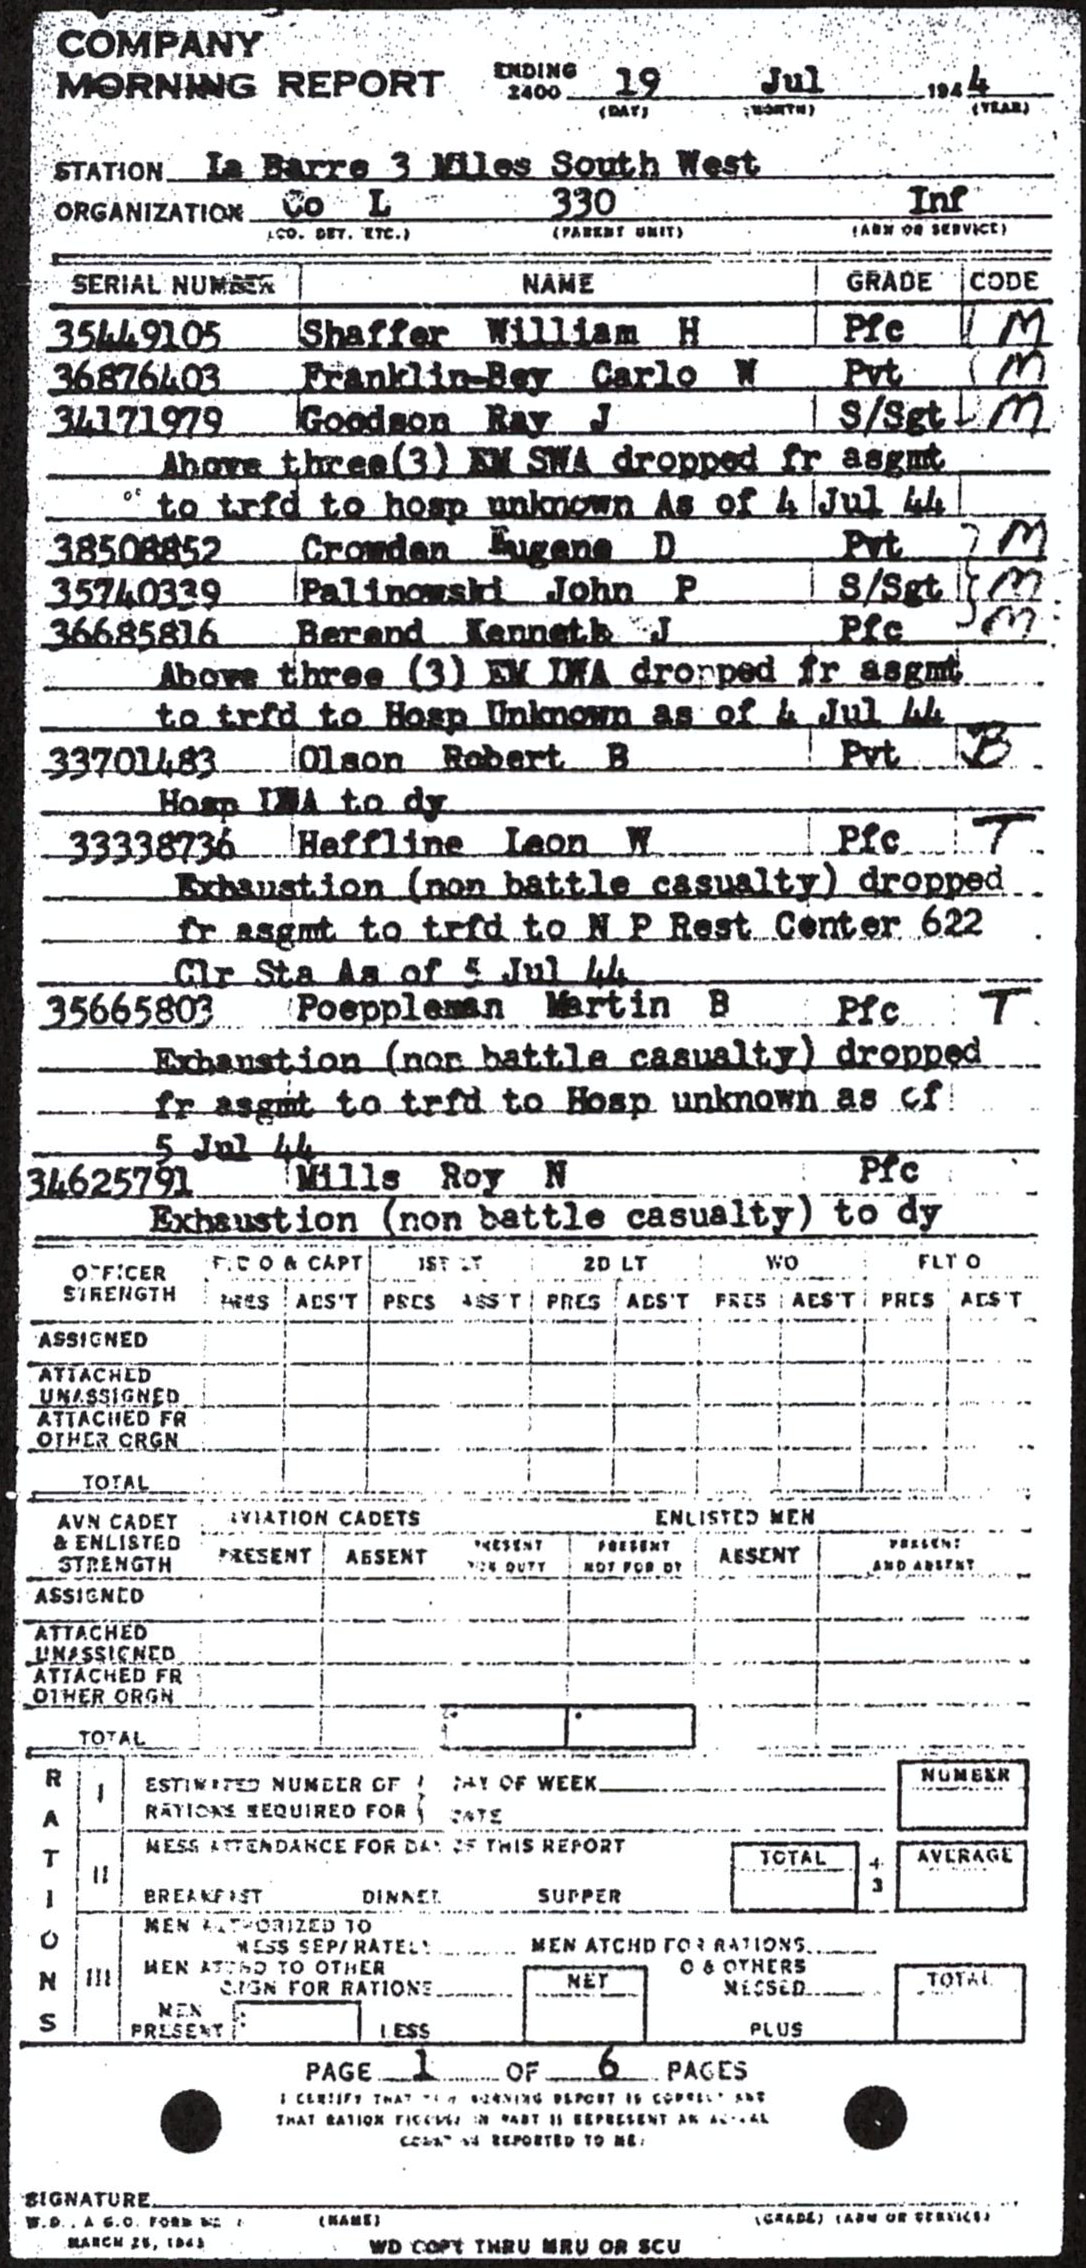 COMPANY
MORNING REPORT ENDING 2400 19 Jul 1944
(DAY) (MONTH) (YEAR)
STATION La Barre 3 Miles South West
ORGANIZATION Co L 330 Inf
(CO. DET. ETC.) (PARENT UNIT) (ARM OR SERVICE)
SERIAL NUMBER NAME GRADE CODE
35449105 Shaffer William H Pfc M
36876403 Franklin-Bey Carlo W Pvt M
34171979 Goodson Ray J S/Sgt M
Above three(3) EM SWA dropped fr asgmt
to trfd to hosp unknown As of 4 Jul 44
38508852 Crowden Eugene D Pvt M
35740339 Palinowski John P S/Sgt M
36685816 Berand Kenneth J Pfc M
Above three (3) EM LWA dropped fr asgmt
to trfd to Hosp Unknown as of 4 Jul 44
33701483 Olson Robert B Pvt B
Hosp LWA to dy
33338736 Heffline Leon W Pfc T
Exhaustion (non battle casualty) dropped
fr asgmt to trfd to N P Rest Center 622
Clr Sta As of 5 Jul 44
35665803 Poeppleman Martin B Pfc T
Exhaustion (non battle casualty) dropped
fr asgmt to trfd to Hosp unknown as of
5 Jul 44
34625791 Mills Roy N Pfc
Exhaustion (non battle casualty) to dy
OFFICER STRENGTH FLD O & CAPT 1ST LT 2D LT WO FLT O
PRES ABS'T PRES ABS'T PRES ABS'T PRES ABS'T PRES ABS'T
ASSIGNED
ATTACHED
UNASSIGNED
ATTACHED FR
OTHER ORGN
TOTAL
AVN CADET & ENLISTED STRENGTH AVIATION CADETS ENLISTED MEN
PRESENT ABSENT PRESENT FOR DUTY PRESENT NOT FOR DY ABSENT PRESENT AND ABSENT
ASSIGNED
ATTACHED
UNASSIGNED
ATTACHED FR
OTHER ORGN
TOTAL
RATIONS
I ESTIMATED NUMBER OF DAY OF WEEK NUMBER
RATIONS REQUIRED FOR DATE
II MESS ATTENDANCE FOR DAY OF THIS REPORT TOTAL ÷ 3 AVERAGE
BREAKFAST DINNER SUPPER
III MEN AUTHORIZED TO
MESS SEPARATELY MEN ATCHD FOR RATIONS
MEN ATCHD TO OTHER O & OTHERS
ORGN FOR RATIONS NET MESSED TOTAL
MEN
PRESENT LESS PLUS
PAGE 1 OF 6 PAGES
I CERTIFY THAT THIS MORNING REPORT IS CORRECT AND
THAT RATION FIGURES IN PART II REPRESENT AN ACTUAL
COUNT AS REPORTED TO ME:
SIGNATURE
W.D., A.G.O. FORM NO. 1 (NAME) (GRADE) (ARM OR SERVICE)
MARCH 25, 1943 WD COPY THRU MRU OR SCU